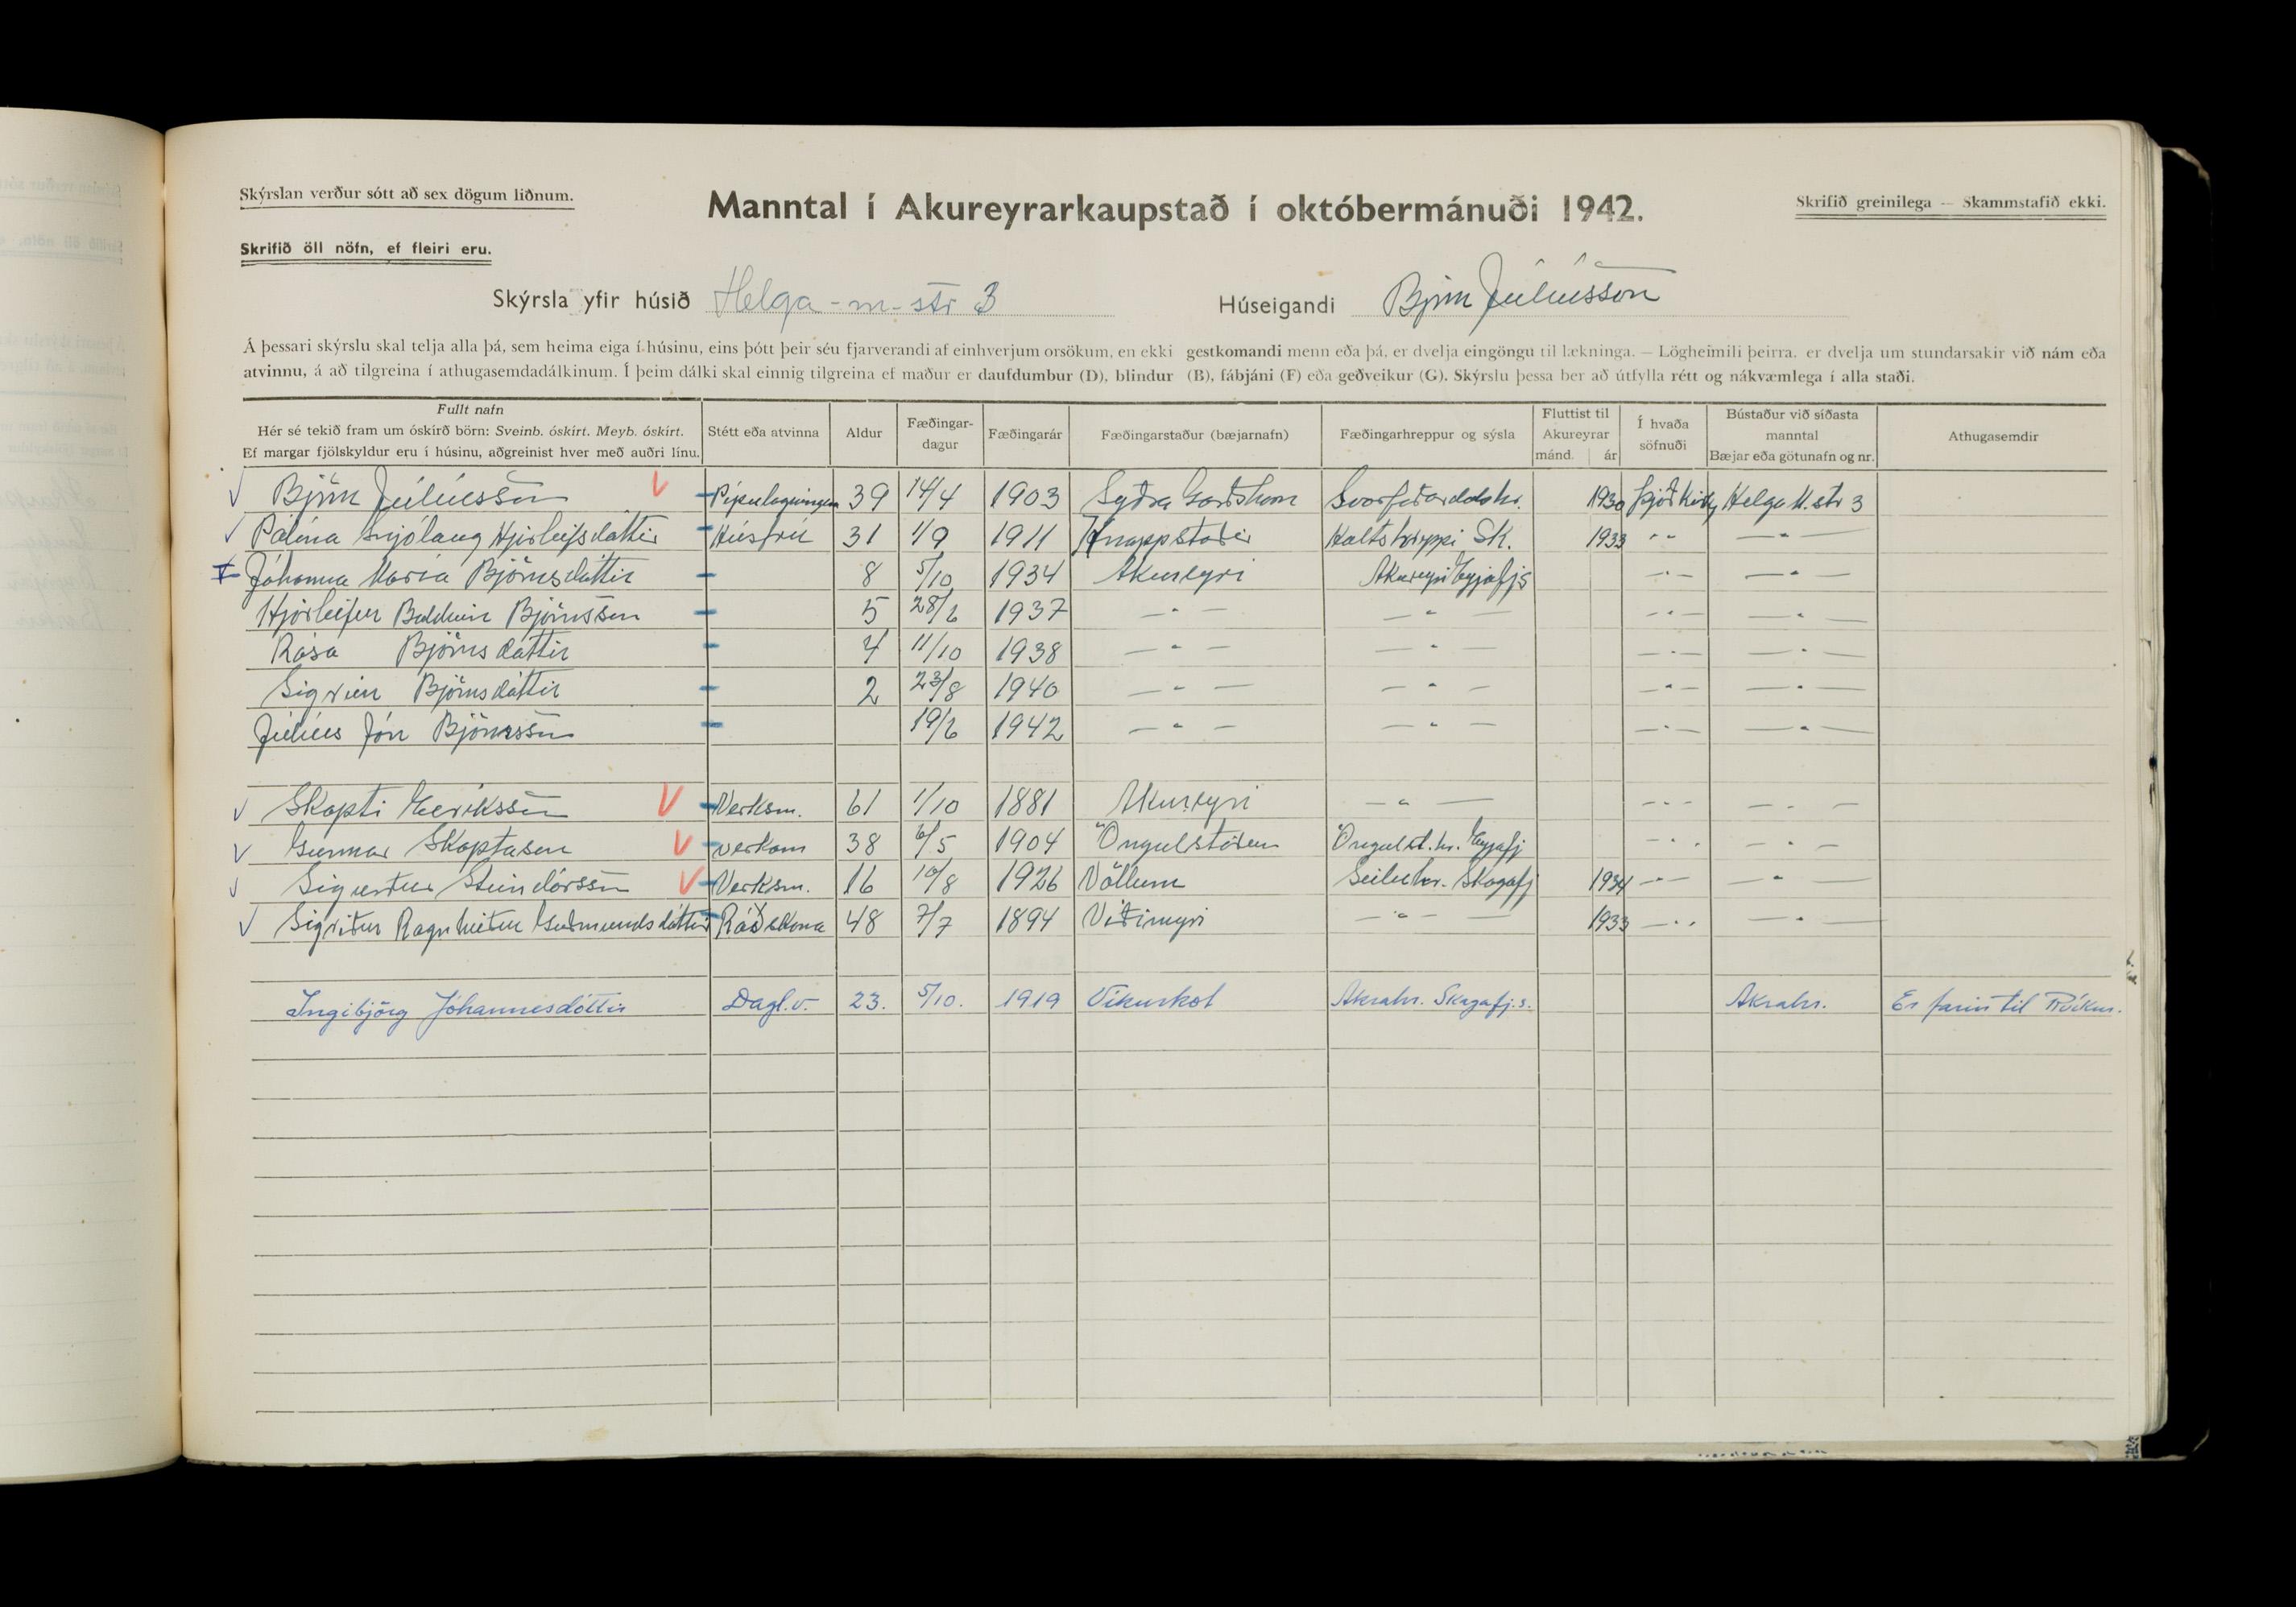 Skýrslan verður sótt að sex dögum liðnum.
Manntal í Akureyrarkaupstað í októbermánuði 1942.
Skrifið greinilega — Skammstafið ekki.
Skrifið öll nöfn, ef fleiri eru.
Skýrsla yfir húsið Helga-m-str 3 Húseigandi Björn Júlíusson
Á þessari skýrslu skal telja alla þá, sem heima eiga í húsinu, eins þótt þeir séu fjarverandi af einhverjum orsökum, en ekki gestkomandi menn eða þá, er dvelja eingöngu til lækninga. — Lögheimili þeirra, er dvelja um stundarsakir við nám eða
atvinnu, á að tilgreina í athugasemdadálkinum. Í þeim dálki skal einnig tilgreina ef maður er daufdumbur (D), blindur (B), fábjáni (F) eða geðveikur (G). Skýrslu þessa ber að útfylla rétt og nákvæmlega í alla staði.
Fullt nafn
Hér sé tekið fram um óskírð börn: Sveinb. óskírt. Meyb. óskírt.
Ef margar fjölskyldur eru í húsinu, aðgreinist hver með auðri línu.
Stétt eða atvinna
Aldur
Fæðingar-
dagur
Fæðingarár
Fæðingarstaður (bæjarnafn)
Fæðingarhreppur og sýsla
Fluttist til
Akureyrar
mánd. ár
Í hvaða
söfnuði
Bústaður við síðasta
manntal
Bæjar eða götunafn og nr.
Athugasemdir
√ Björn Júlíusson V 39 14/4 1903 Syðra Garðshorn Svarfaðardalshr. 1930 Þjóðkirkj Helga M. str 3
√ Pálína Snjólaug Hjörleifsdóttir Húsfrú 31 1/9 1911 Knappstaðir Haltshreppi Sk. 1933 " — " —
Jóhanna María Björnsdóttir 8 5/10 1934 Akureyri Akureyri Eyjafjs — " — — " —
Hjörleifur Baldvin Björnsson 5 28/2 1937 — " — — " — — " — — " —
Rósa Björnsdóttir 4 11/10 1938 — " — — " — — " — — " —
Sigrún Björnsdóttir 2 23/8 1940 — " — — " — — " — — " —
Júlíus Jón Björnsson 19/6 1942 — " — — " — — " — — " —
√ Skapti Eeiríksson V Verksm. 61 1/10 1881 Akureyri — " — — " — — " —
√ Gunnar Skaptason V verkam 38 6/5 1904 Öngulstöðum Öngulst.hr. Eyjafj — " — — " —
√ Sigurður Steindórsson V Verksm. 16 10/8 1926 Völlum Seiluhr. Skagafj 1934 — " — — " —
√ Sigríður Ragnheiður Guðmundsdóttir Ráðskona 48 7/7 1894 Víðimýri — " — 1933 — " — — " —
Ingibjörg Jóhannesdóttir Dagl.v. 23. 5/10. 1919 Víkurkot Akrahr. Skagafj.s. Akrahr. Er farin til Rvíkur.